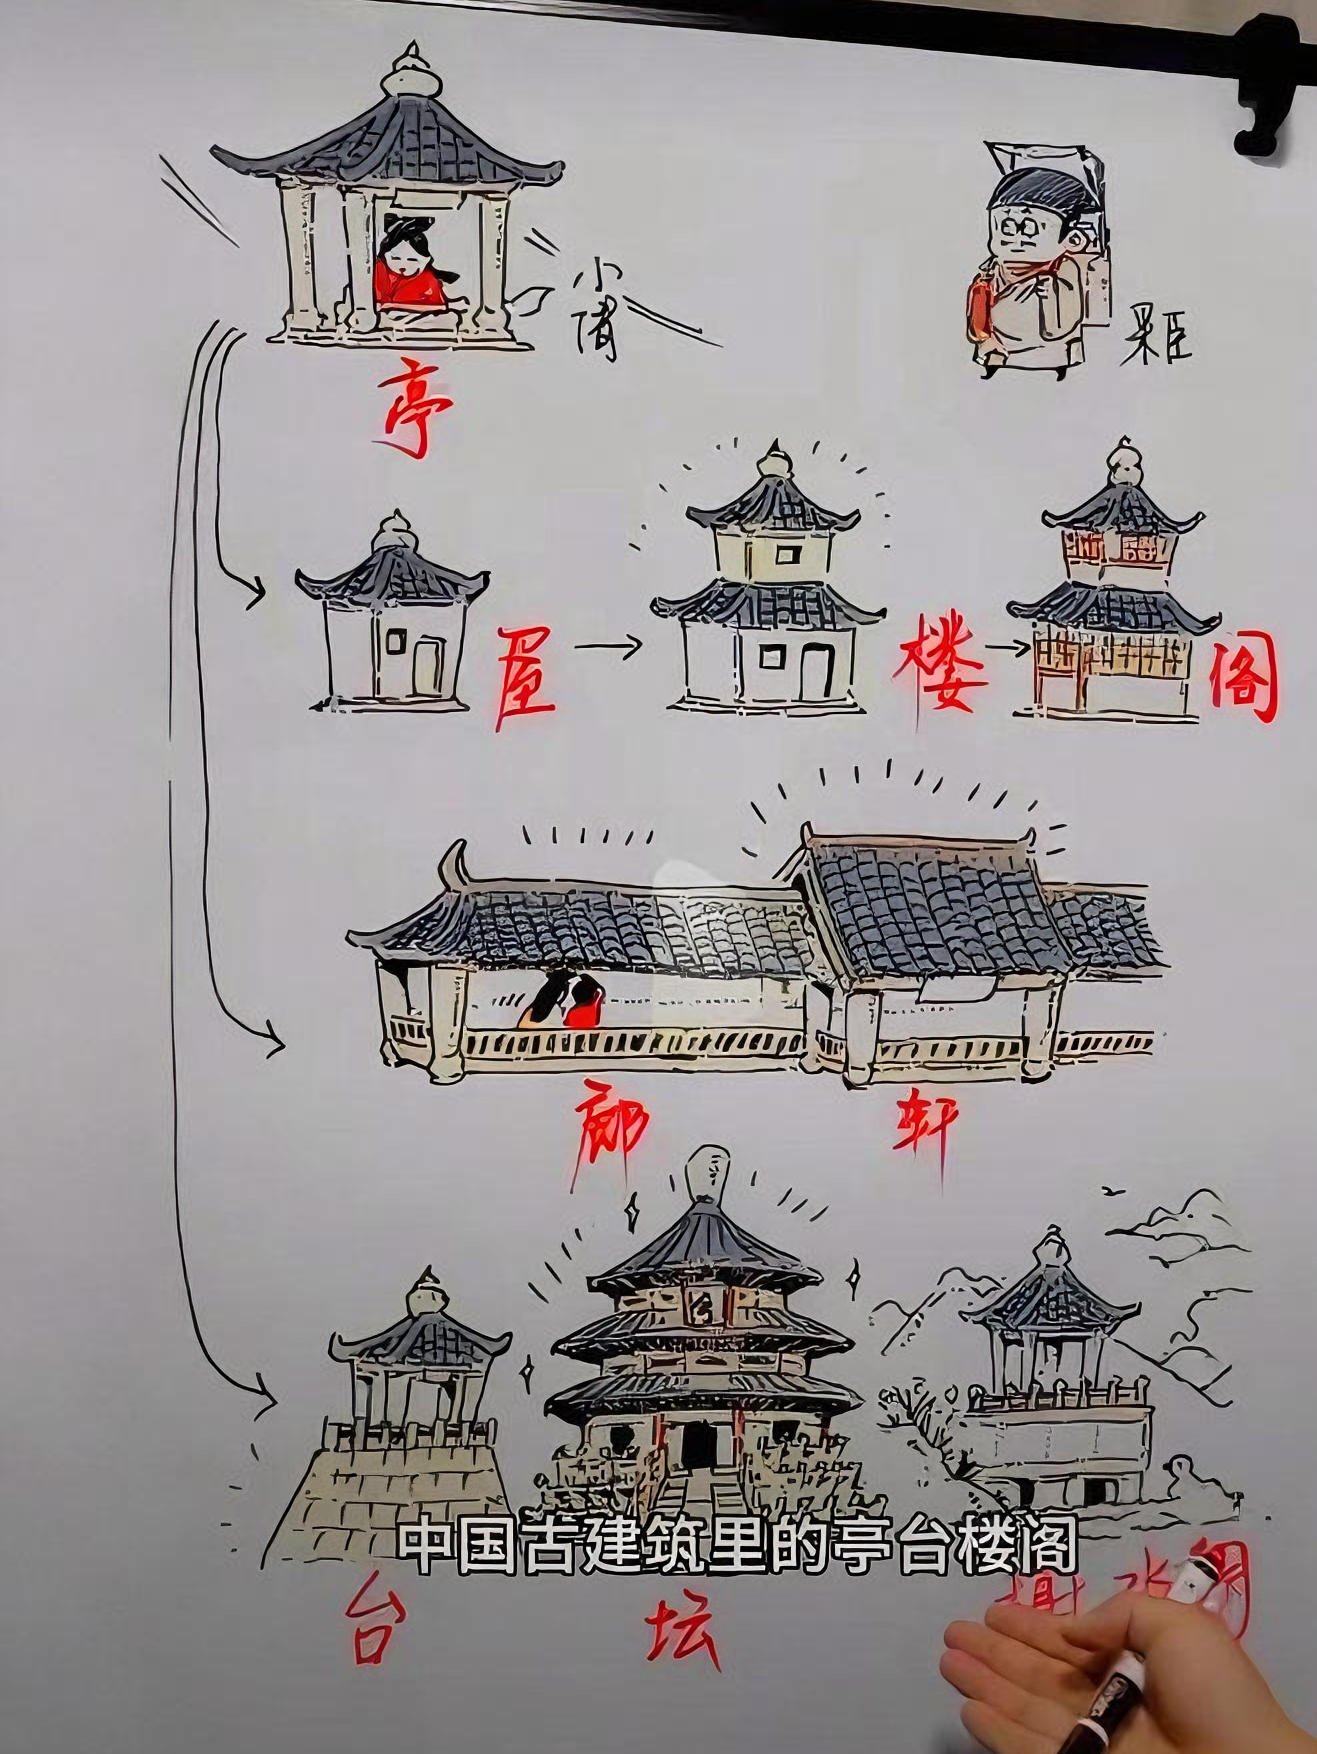 小
亭
屋
楼
阁
廊
轩
中国古建筑里的亭台楼阁
台
坛
榭
水阁